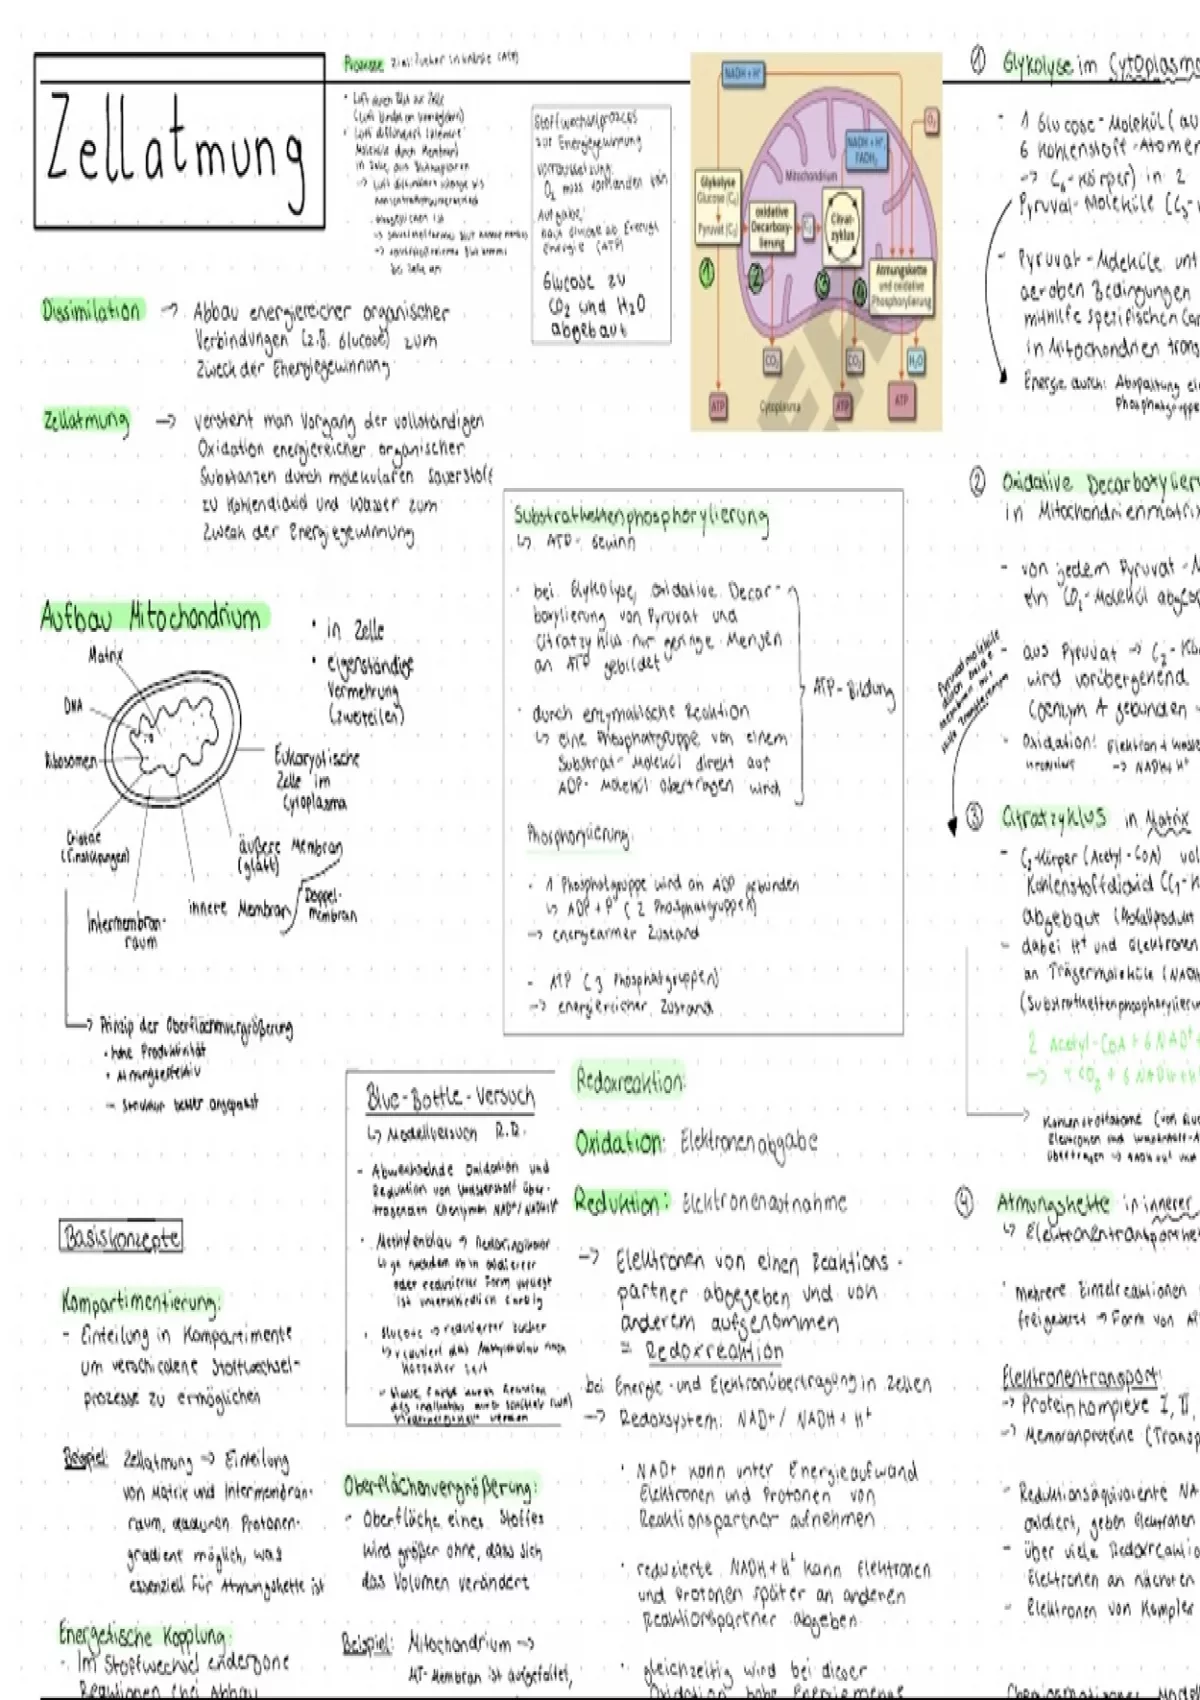 Zellatmung
Prozesse
• Luft durch Blut zur Zelle
Moleküle durch Membran)
Stoffwechselprozess
zur Energiegewinnung
Vorraussetzung:
O₂ muss vorhanden sein
Aufgabe:
Energie (ATP)
Glucose zu
CO₂ und H₂O
abgebaut
NADH + H⁺
O₂
NADH + H⁺,
FADH₂
Mitochondrium
Glykolyse
Glucose (C₆)
Pyruvat (C₃)
oxidative
Decarboxy-
lierung
C₂
Citrat-
zyklus
Atmungskette
und oxidative
Phosphorylierung
1
2
3
4
CO₂
CO₂
H₂O
ATP
Cytoplasma
ATP
ATP
Dissimilation → Abbau energiereicher organischer
Verbindungen (z.B. Glucose) zum
Zweck der Energiegewinnung
Zellatmung → versteht man Vorgang der vollständigen
Oxidation energiereicher organischer
Substanzen durch molekularen Sauerstoff
zu Kohlendioxid und Wasser zum
Zweck der Energiegewinnung
Aufbau Mitochondrium
• in Zelle
• eigenständige
Vermehrung
(zweiteilen)
Matrix
DNA
Ribosomen
Cristae
(Einstülpungen)
Intermembran-
raum
innere Membran
äußere Membran
(glatt)
Doppel-
membran
Eukaryotische
Zelle im
Cytoplasma
→ Prinzip der Oberflächenvergrößerung
• hohe Produktivität
Substratkettenphosphorylierung
↳ ATP - Gewinn
• bei Glykolyse, oxidative Decar-
boxylierung von Pyruvat und
Citratzyklus nur geringe Mengen
an ATP gebildet
• durch enzymatische Reaktion
↳ eine Phosphatgruppe von einem
Substrat-Molekül direkt auf
ADP-Molekül übertragen wird
ATP-Bildung
Phosphorylierung:
• 1 Phosphatgruppe wird an ADP gebunden
↳ ADP + P (2 Phosphatgruppen)
→ energiearmer Zustand
- ATP (3 Phosphatgruppen)
→ energiereicher Zustand
Blue-Bottle-Versuch
↳ Modellversuch R.R.
- Abwechselnde Oxidation und
Reduktion von Wasserstoff über-
tragenden Coenzymen NAD⁺/NADH+H⁺
• Methylenblau → Redoxindikator
oder reduzierter Form vorliegt
ist unterschiedlich farbig
• Glucose → reduzierter Zucker
Redoxreaktion:
Oxidation: Elektronenabgabe
Reduktion: Elektronenaufnahme
→ Elektronen von einen Reaktions-
partner abgegeben und von
anderem aufgenommen
= Redoxreaktion
bei Energie- und Elektronübertragung in Zellen
→ Redoxsystem: NAD+ / NADH + H⁺
• NAD+ kann unter Energieaufwand
Elektronen und Protonen von
Reaktionspartner aufnehmen
• reduzierte NADH+H⁺ kann Elektronen
und Protonen später an anderen
Reaktionspartner abgeben
• gleichzeitig wird bei dieser
Oxidation hohe Energiemenge
Basiskonzepte
Kompartimentierung:
- Einteilung in Kompartimente
um verschiedene Stoffwechsel-
prozesse zu ermöglichen
Beispiel: Zellatmung → Einteilung
von Matrix und Intermembran-
raum, dadurch Protonen-
gradient möglich, was
essenziell für Atmungskette ist
Energetische Kopplung:
- Im Stoffwechsel endergone
Reaktionen (bei Abbau
Oberflächenvergrößerung:
- Oberfläche eines Stoffes
wird größer ohne, dass sich
das Volumen verändert
Beispiel: Mitochondrium →
MT-Membran ist aufgefaltet,
① Glykolyse im Cytoplasma
- 1 Glucose-Molekül (au
6 Kohlenstoff-Atomen
-> C₆-Körper) in 2
Pyruvat-Moleküle (C₃-
- Pyruvat-Moleküle unt
aeroben Bedingungen
mithilfe spezifischen Car
in Mitochondrien trans
Energie durch: Abspaltung ei
Phosphatgruppe
② Oxidative Decarboxylier
in Mitochondrienmatrix
- von jedem Pyruvat-M
ein CO₂-Molekül abges
- aus Pyruvat → C₂-Kö
wird vorübergehend
Coenzym A gebunden
- Oxidation: Elektron + Wasse
→ NADH+H⁺
③ Citratzyklus in Matrix
- C₂-Körper (Acetyl-CoA) vol
Kohlenstoffdioxid (C₁-K
abgebaut (Abfallprodukt
- dabei H⁺ und Elektronen
an Trägermoleküle (NADH
(Substratkettenphosphorylierun
2 Acetyl-CoA + 6 NAD⁺ +
→ 4 CO₂ + 6 NADH+H
④ Atmungskette in innerer
↳ Elektronentransportket
• mehrere Einzelreaktionen
freigesetzt → Form von AT
Elektronentransport:
-> Proteinkomplexe I, II,
-> Membranproteine (Transp
- Reduktionsäquivalente NA
oxidiert, geben Elektronen
- über viele Redoxreaktio
Elektronen an nächsten
- Elektronen von Komplex